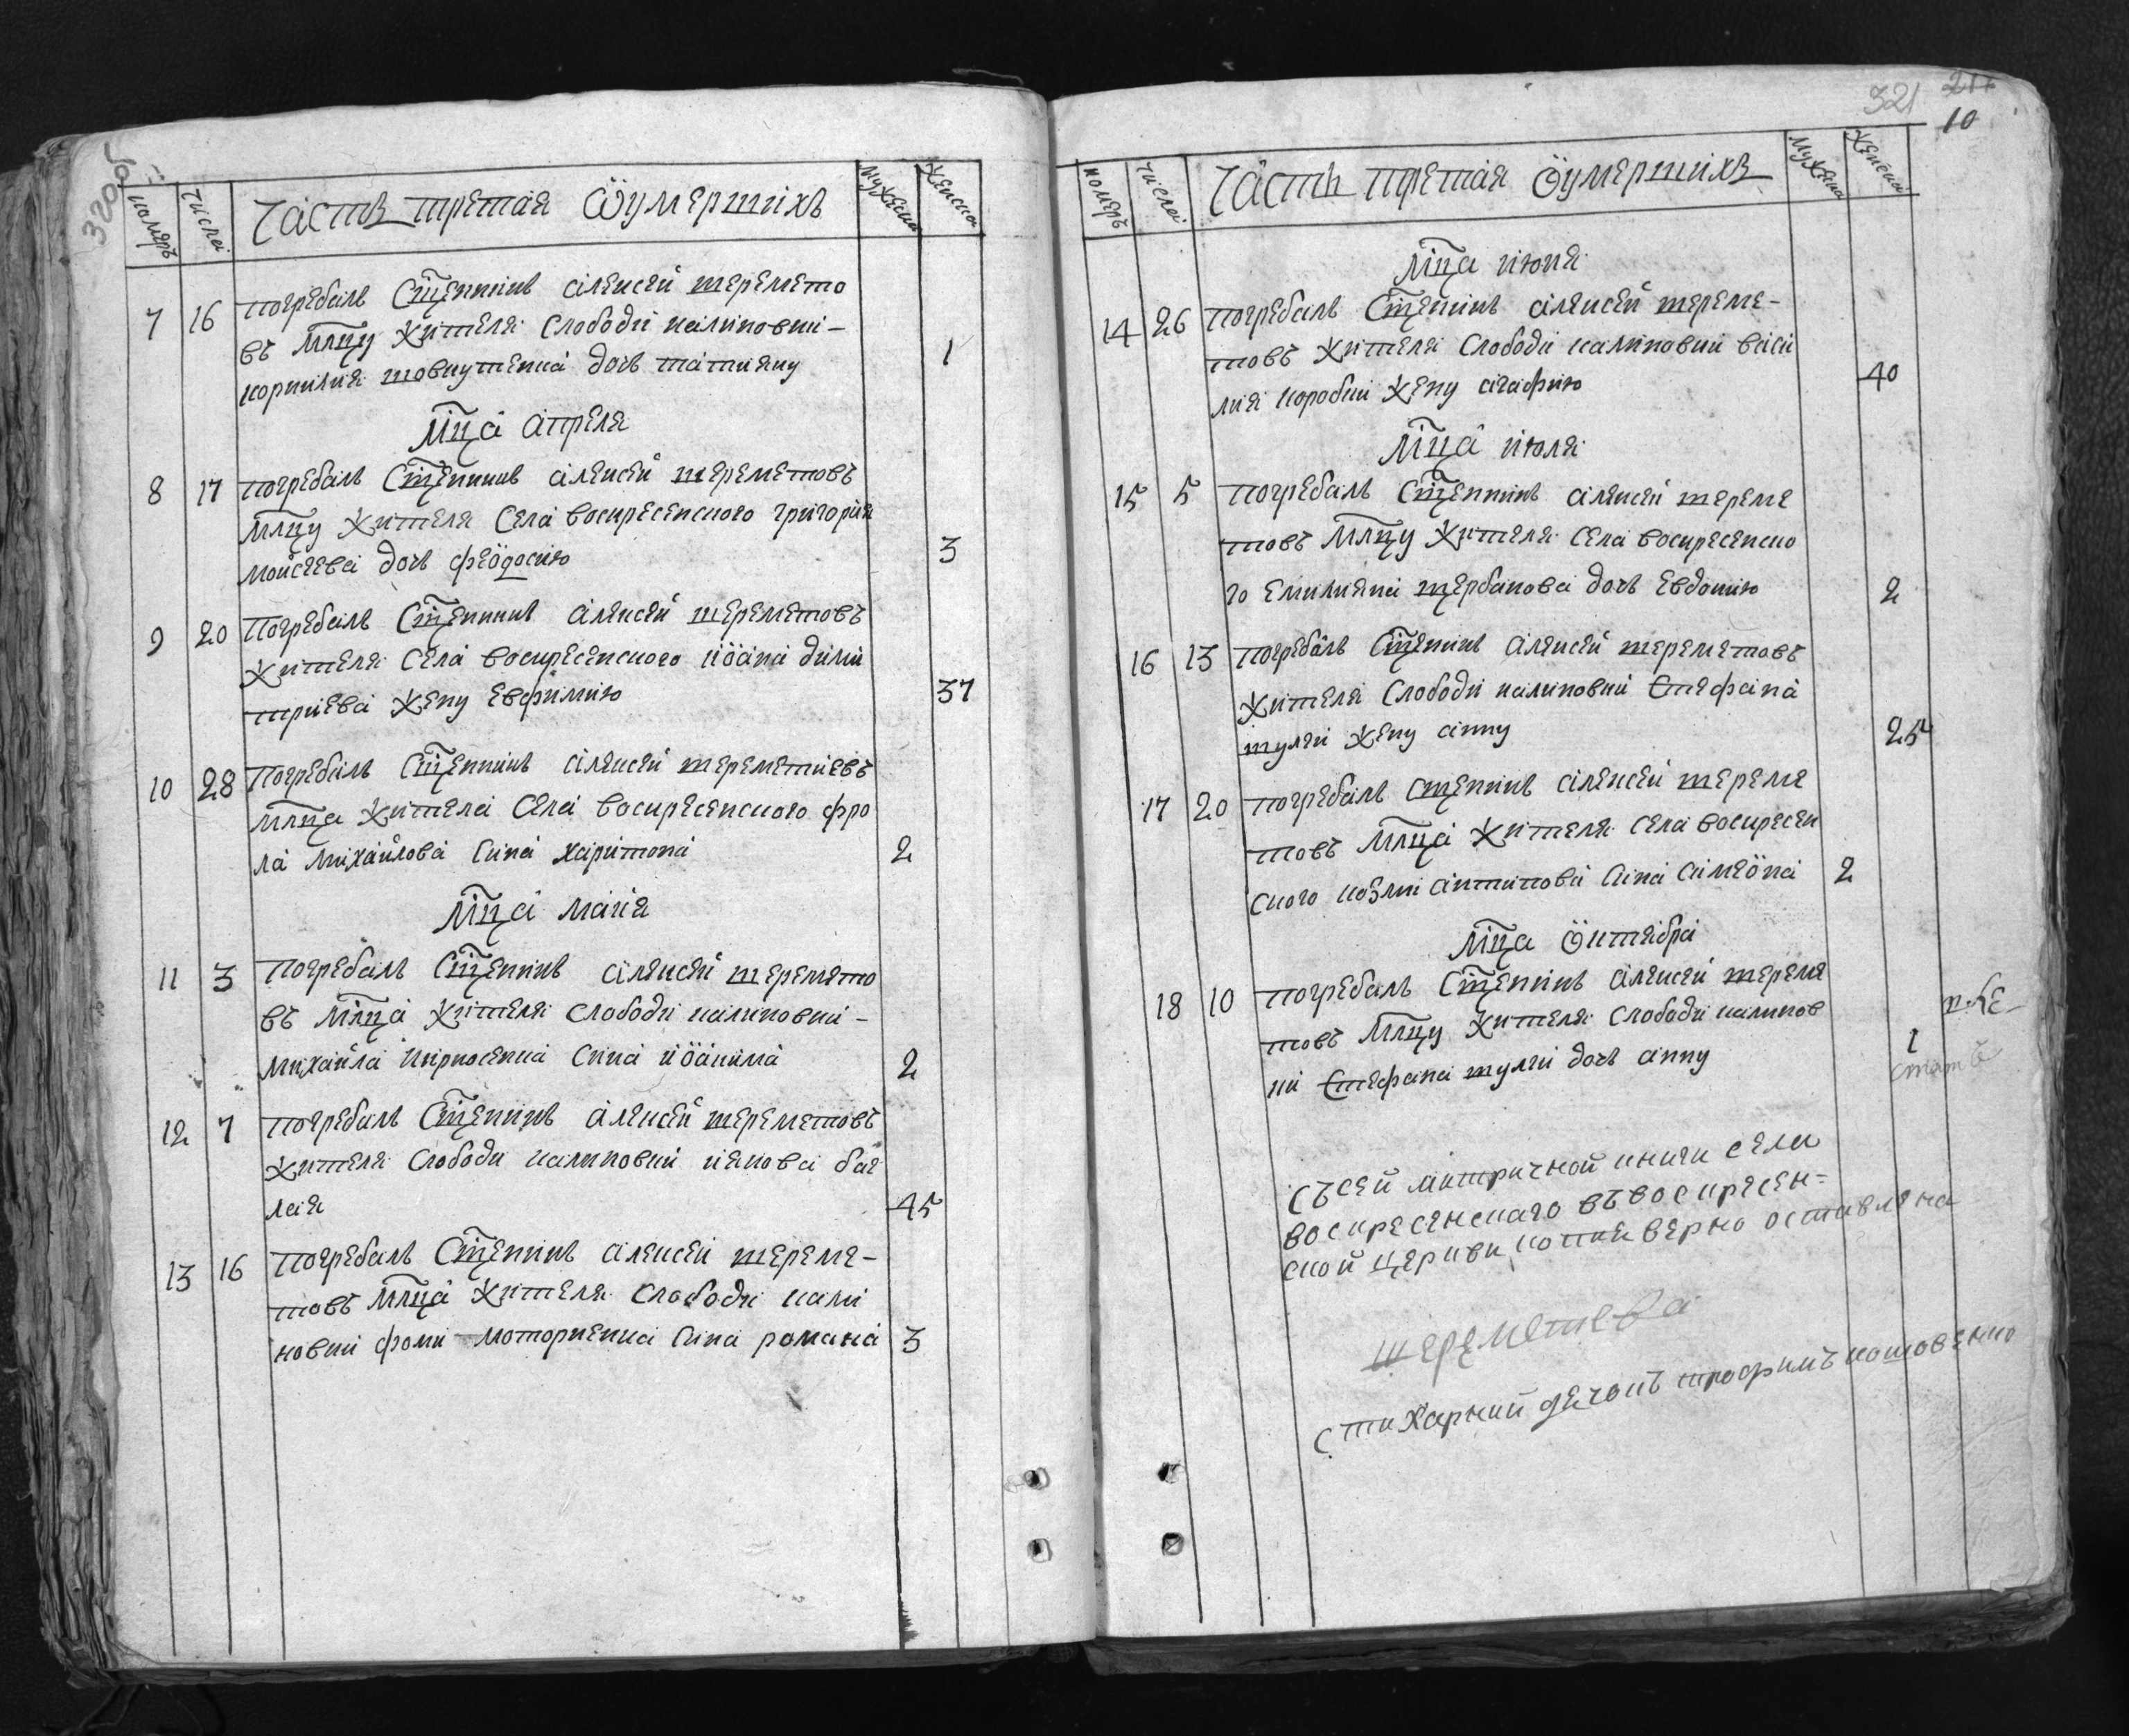 320об
номеръ числа Часть третая ѿ умершихъ мужеска женска
7 16 погребалъ Сщ҃енникъ алеѯей шеремето
въ млнцу жителя слободи калиновки-
корнилия шовкутенка дочь татияну 1
Мц҃а апреля
8 17 погребалъ Сщ҃енникъ алексей шереметовъ
млнцу жителя села воскресенского григория
мойсеева дочь феѡдосию 3
9 20 погребалъ Сщ҃енникъ алексей шереметовъ
жителя села воскресенского иѡана дими
триева жену евфимию 37
10 28 погребалъ Сщ҃енникъ алексей шереметиевъ
млнца жителя села воскресенского фро
ла михайлова сина харитона 2
Мц҃а маия
11 3 погребалъ Сщ҃енникъ алексей шеремето
въ млнца жителя слободи калиновки-
михайла кирносенка сина иѡаникия 2
12 7 погребалъ Сщ҃еникъ алексей шереметовъ
жителя слободи калиновки иякова бае
лая 45
13 16 погребалъ Сщ҃енникъ алексей шереме-
товъ млнца жителя слободи кали
новки фоми моторненка сина романа 3
321
10
номеръ числа Часть третая ѿ умершихъ мужеска женска
Мц҃а июня
14 26 погребалъ Сщ҃еникъ алексей шереме-
товъ жителя слободи калиновки васи
лия коробки жену агафию 40
Мц҃а июля
15 5 погребалъ Сщ҃енникъ алексей шереме
товъ млнцу жителя села воскресенско
го емилияна щербакова дочь евдокию 2
16 13 погребалъ Сщ҃еникъ алексей шереметовъ
жителя слободи калиновки стефана
шулги жену анну 25
17 20 погребалъ сщеникъ алексей шереме
товъ млнца жителя села воскресен
ского козми антипова сина симеѡна 2
Мц҃а ѡктября
18 10 погребалъ Сщ҃еникъ алексей шереме
товъ млнцу жителя слободи калинов
ки стефана шулги дочь анну 1
съ сей митричной книги села
воскресенскаго въ воскресен=
ской церкви копия верно оставлена
шереметева
стихарний дячокъ трофимъ кошовенко